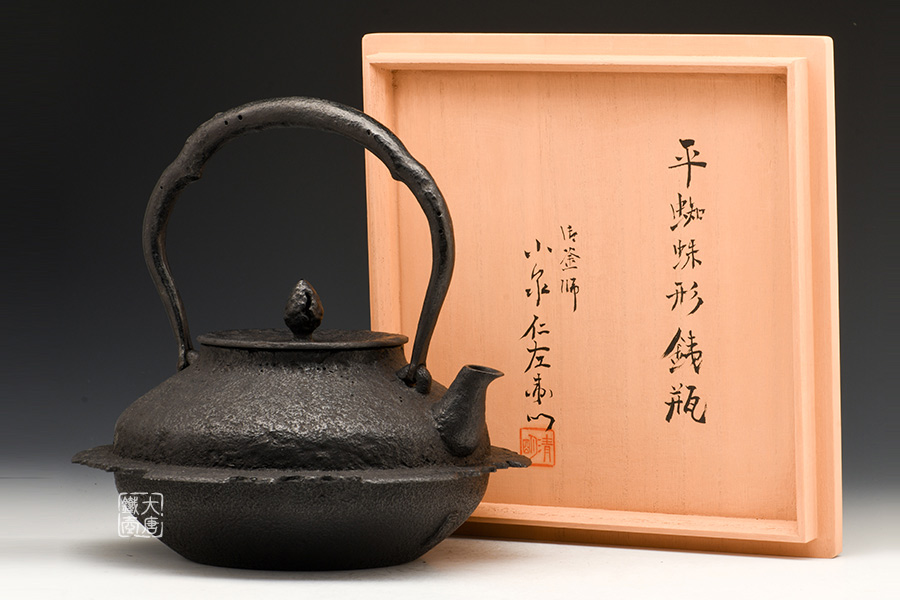 平蜘蛛形鉄瓶
御釜師
小泉仁左衛門
清
大唐
鐵壺